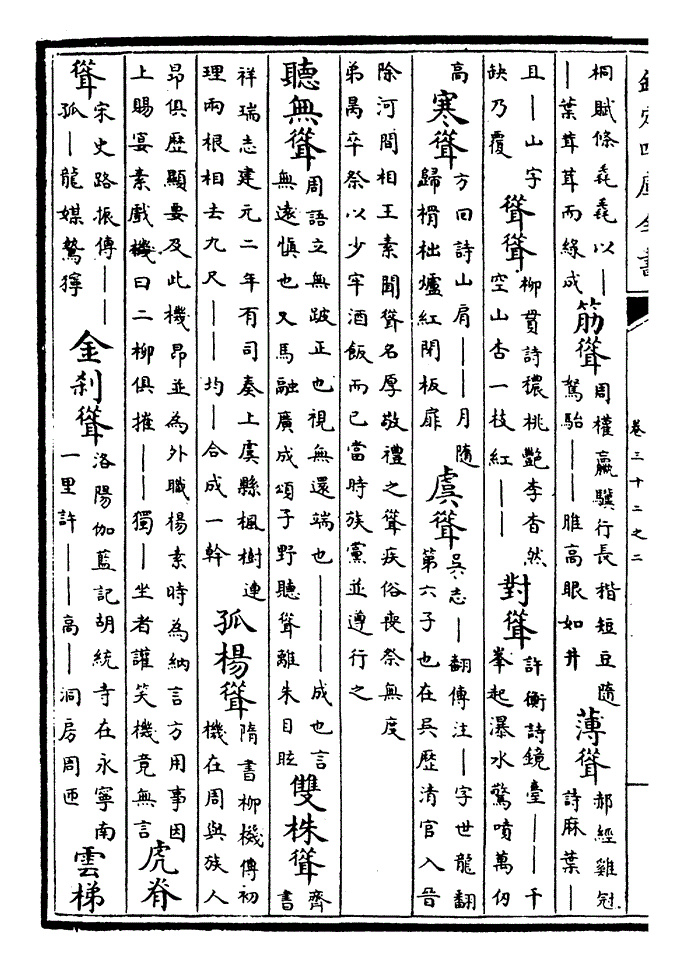 欽定四庫全書
卷三十二之二
桐賦條毳毳以｜｜葉茸茸而綠成 筋聳 周權羸驥行長楷短豆隨駑駘｜｜脽高眼如井 薄聳 郝經雞冠詩麻葉｜
且｜山字缺乃覆 聳聳 柳貫詩穠桃艷李杳然空山杏一枝紅｜｜ 對聳 許衡詩鏡臺｜｜千峯起瀑水驚噴萬仞
高 寒聳 方回詩山肩｜｜月隨歸榾柮爐紅閉板扉 虞聳 吳志｜翻傳注｜字世龍翻第六子也在吳歷清官入晉
除河間相王素聞聳名厚敬禮之聳疾俗喪祭無度弟昺卒祭以少牢酒飯而已當時族黨並遵行之
聽無聳 周語立無跛正也視無還端也｜｜｜成也言無遠慎也又馬融廣成頌子野聽聳離朱目眩 雙株聳 齊書
祥瑞志建元二年有司奏上虞縣楓樹連理兩根相去九尺｜｜均｜合成一幹 孤楊聳 隋書柳機傳初機在周與族人
昂俱歷顯要及此機昂並為外職楊素時為納言方用事因上賜宴素戲機曰二柳俱摧｜｜獨｜坐者讙笑機竟無言 虎脊
聳 宋史路振傳｜｜孤｜龍媒騺獰 金刹聳 洛陽伽藍記胡統寺在永寧南一里許｜｜｜高｜洞房周匝 雲梯